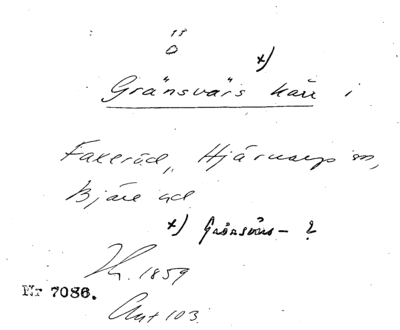 ö x)
Gränsvärs kärr i
Faxeröd, Hjärnarps sn,
Bjäre hd
x) Gränsörs- ?
1859
Nr 7086.
Ant 103